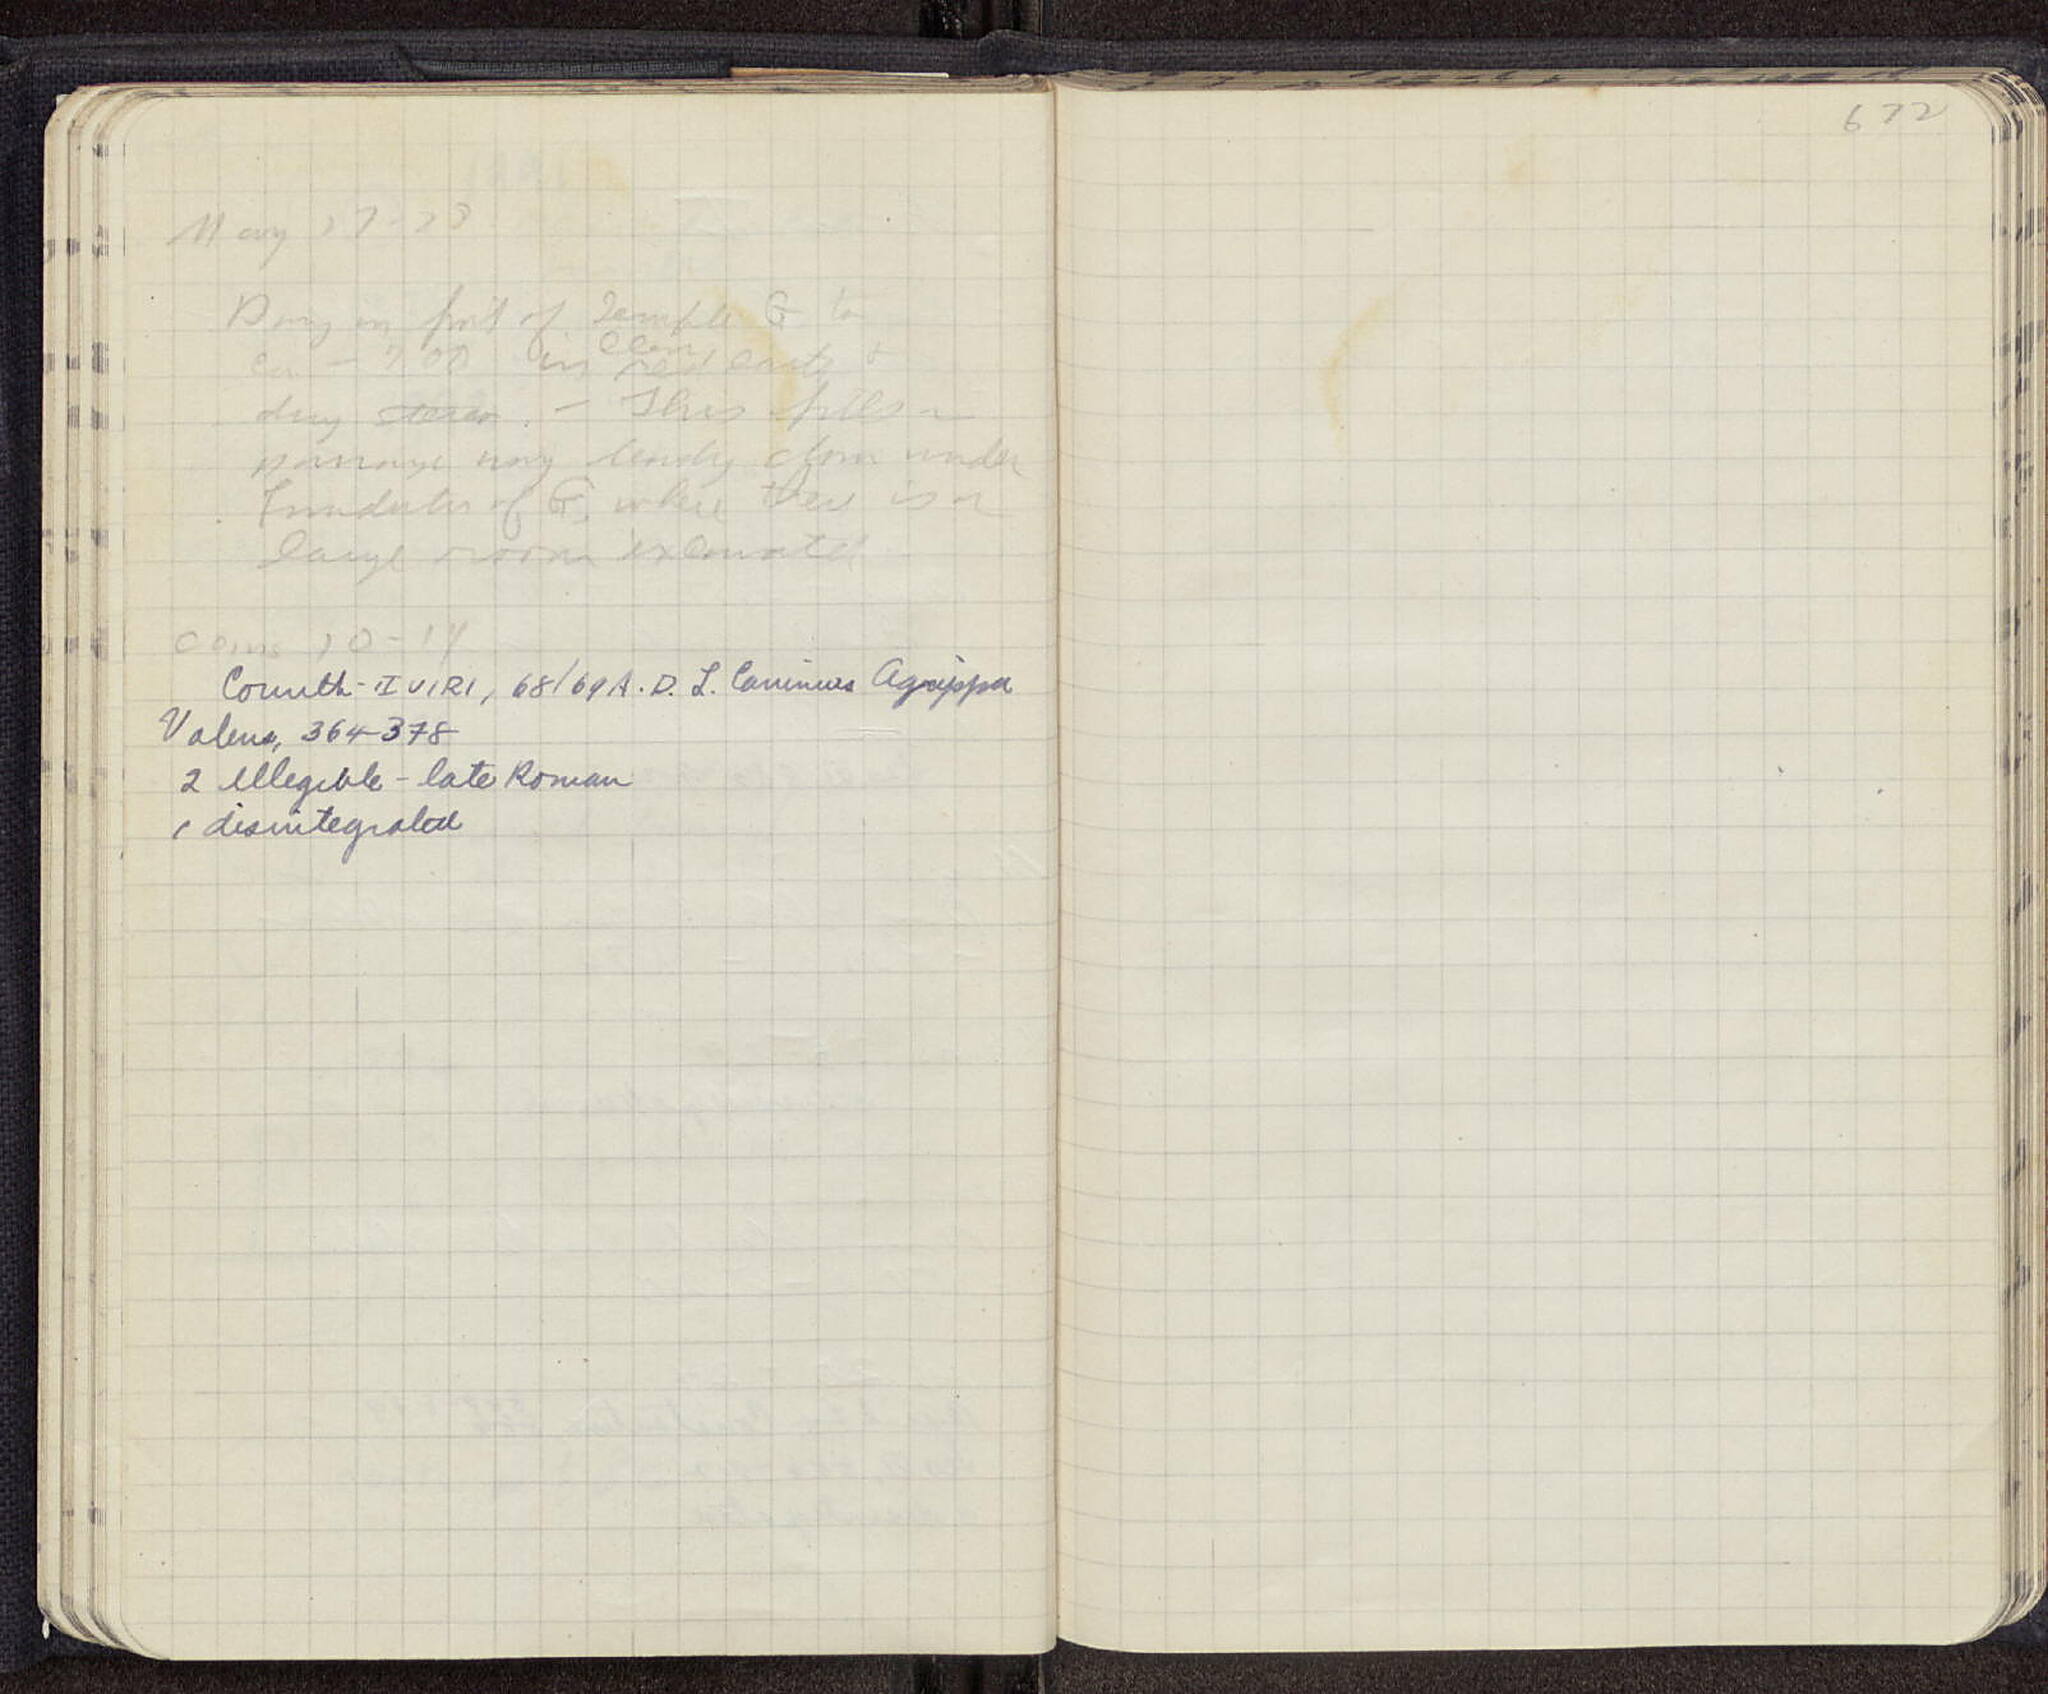 672
May 27-28
Dug in front of Temple G to
ca - 7.00 in clean red earth &
dug down. - This fills a
passage way leading down under
foundation of G, where there is a
large room excavated
Coins 10-14
Corinth - II VIRI, 68/69 A.D. L. Caninius Agrippa
Valens, 364-378
2 illegible - late Roman
1 disintegrated